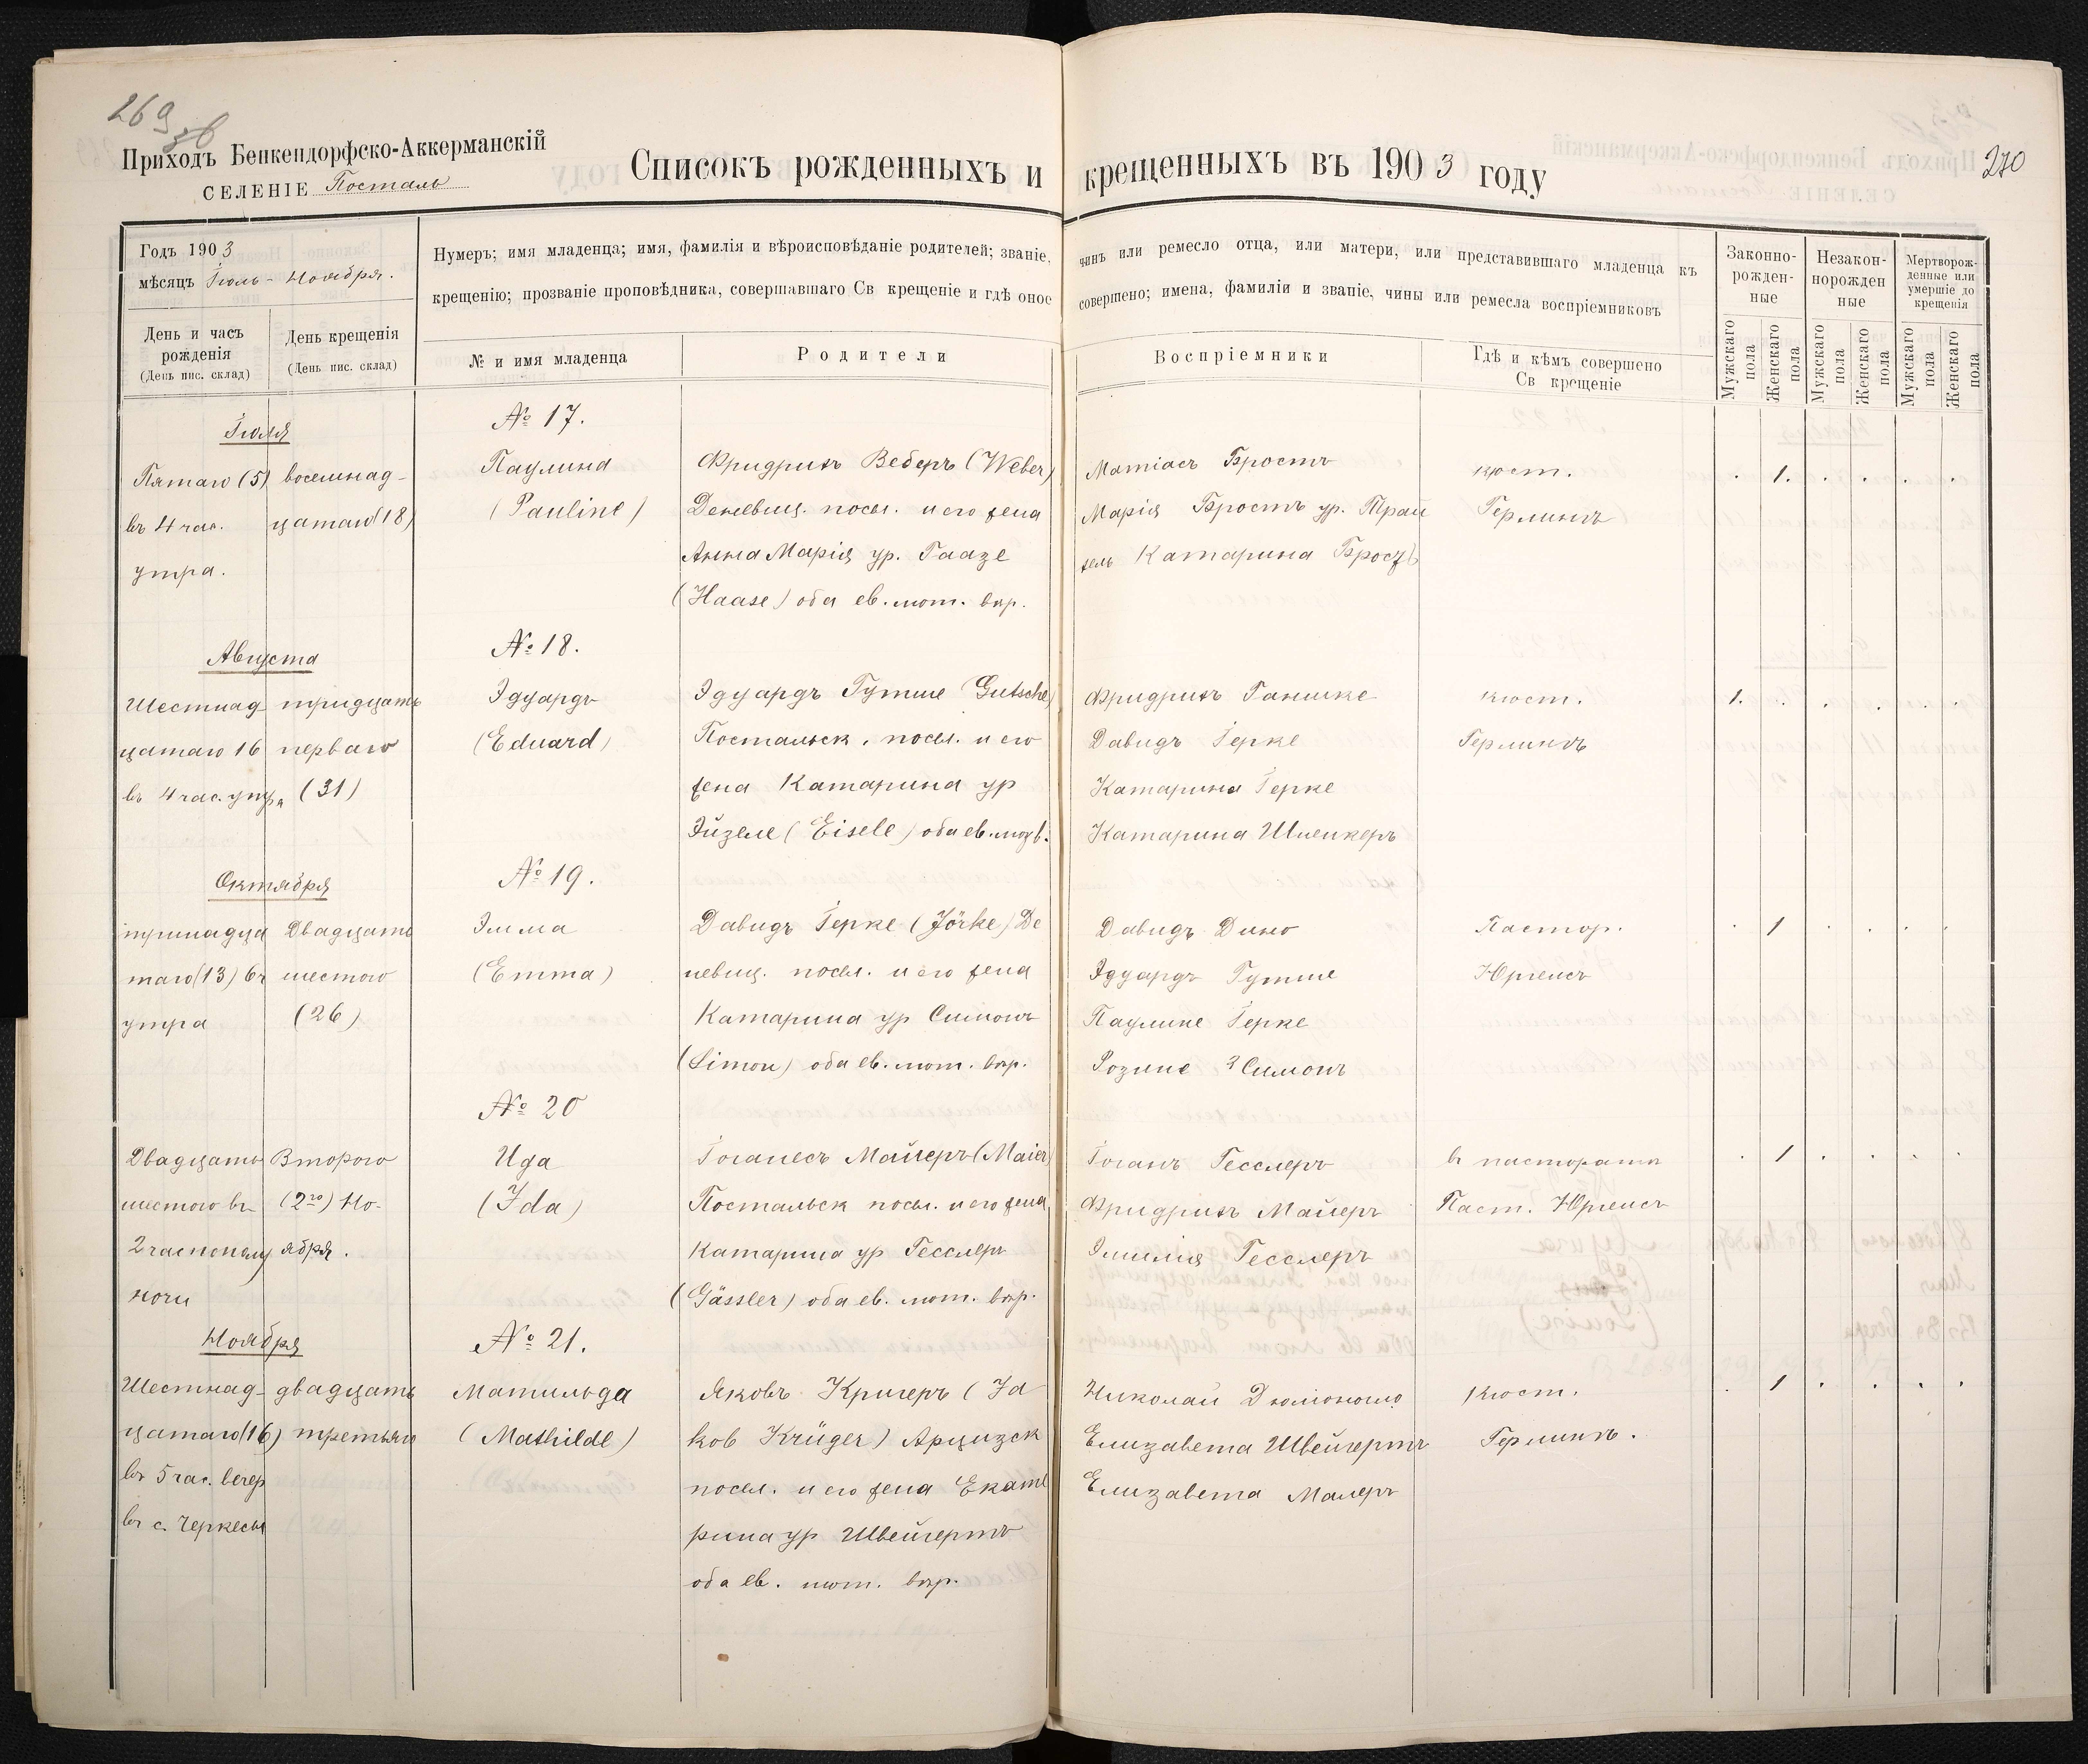 269
Приходъ Бенкендорфско-Аккерманскій
СЕЛЕНІЕ Посталь
Списокъ рожденныхъ и крещенныхъ въ 1903 году
270
Годъ 1903
мѣсяцъ Іюль - Ноября.
День и часъ рожденія
(День пис. склад)
День крещенія
(День пис. склад)
Нумеръ; имя младенца; имя, фамилія и вѣроисповѣданіе родителей; званіе, чинъ или ремесло отца, или матери, или представившаго младенца къ
крещенію; прозваніе проповѣдника, совершавшаго Св крещеніе и гдѣ оное совершено; имена, фамиліи и званіе, чины или ремесла воспріемниковъ
№ и имя младенца
Родители
Воспріемники
Гдѣ и кѣмъ совершено
Св крещеніе
Законно-
рожден-
ные
Незакон-
норожден
ные
Мертворож-
денные или
умершіе до
крещенія
Мужскаго пола
Женскаго пола
Мужскаго пола
Женскаго пола
Мужскаго пола
Женскаго пола
Іюля
Пятаго (5)
въ 4 час.
утра.
восемнад-
цатаго (18)
№ 17.
Паулина
(Pauline)
Фридрихъ Веберъ (Weber)
Деневиц. посел. и его жена
Анна Марія ур. Гаазе
(Haase) оба ев. лют. вѣр.
Матіасъ Бростъ
Марія Бростъ ур. Трай
тель Катарина Бростъ
кюст.
Герлингъ
1.
Августа
Шестнад
цатаго 16
въ 4 час. утра
тридцать
перваго
(31)
№ 18.
Эдуардъ
(Eduard)
Эдуардъ Гутше (Gutsche)
Постальск. посел. и его
жена Катарина ур
Эйзеле (Eisele) оба ев. лют. в.
Фридрихъ Ганишке
Давидъ Іерке
Катарина Іерке
Катарина Шленкеръ
кюст.
Герлингъ
1.
Октября
тринадца
таго (13) 6 ч
утра
Двадцать
шестого
(26)
№ 19.
Эмма
(Emma)
Давидъ Іерке (Jörke) Де
невиц. посел. и его жена
Катарина ур Симонъ
(Simon) оба ев. лют. вѣр.
Давидъ Дино
Эдуардъ Гутше
Паулине Іерке
Розине Симонъ
Пастор.
Юргенсъ
1
Двадцать
шестого въ
2 часа пополу
ночи
Второго
(2го) Но-
ября.
№ 20
Ида
(Ida)
Іоганесъ Майеръ (Maier)
Постальск посел. и его жена
Катарина ур Гесслеръ
(Gässler) оба ев. лют. вѣр.
Іоганъ Гесслеръ
Фридрихъ Майеръ
Эмилія Гесслеръ
в пасторатѣ
Паст. Юргенсъ
1
Ноября
Шестнад-
цатаго (16)
въ 5 час. вечер
въ с. Черкесы
двадцать
третьяго
№ 21.
Матильда
(Mathilde)
Яковъ Кригеръ (Ja
kob Krüger) Арцизск
посел. и его жена Екате
рина ур Швейгертъ
оба ев. лют. вѣр.
Николай
Елизавета Швейгертъ
Елизавета Малеръ
кюст.
Герлингъ.
1